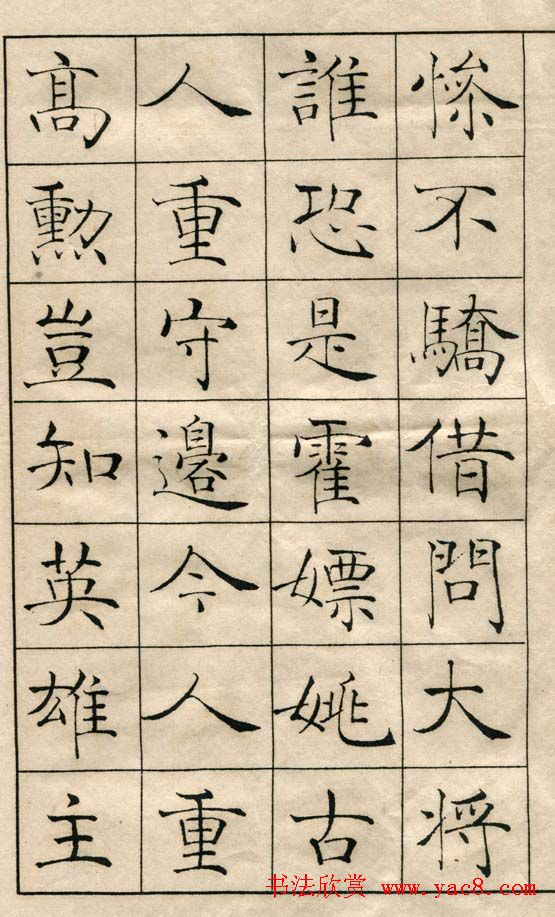 慘不驕借問大将
誰恐是霍嫖姚古
人重守邊今人重
髙勳豈知英雄主
书法欣赏 www.yac8.com